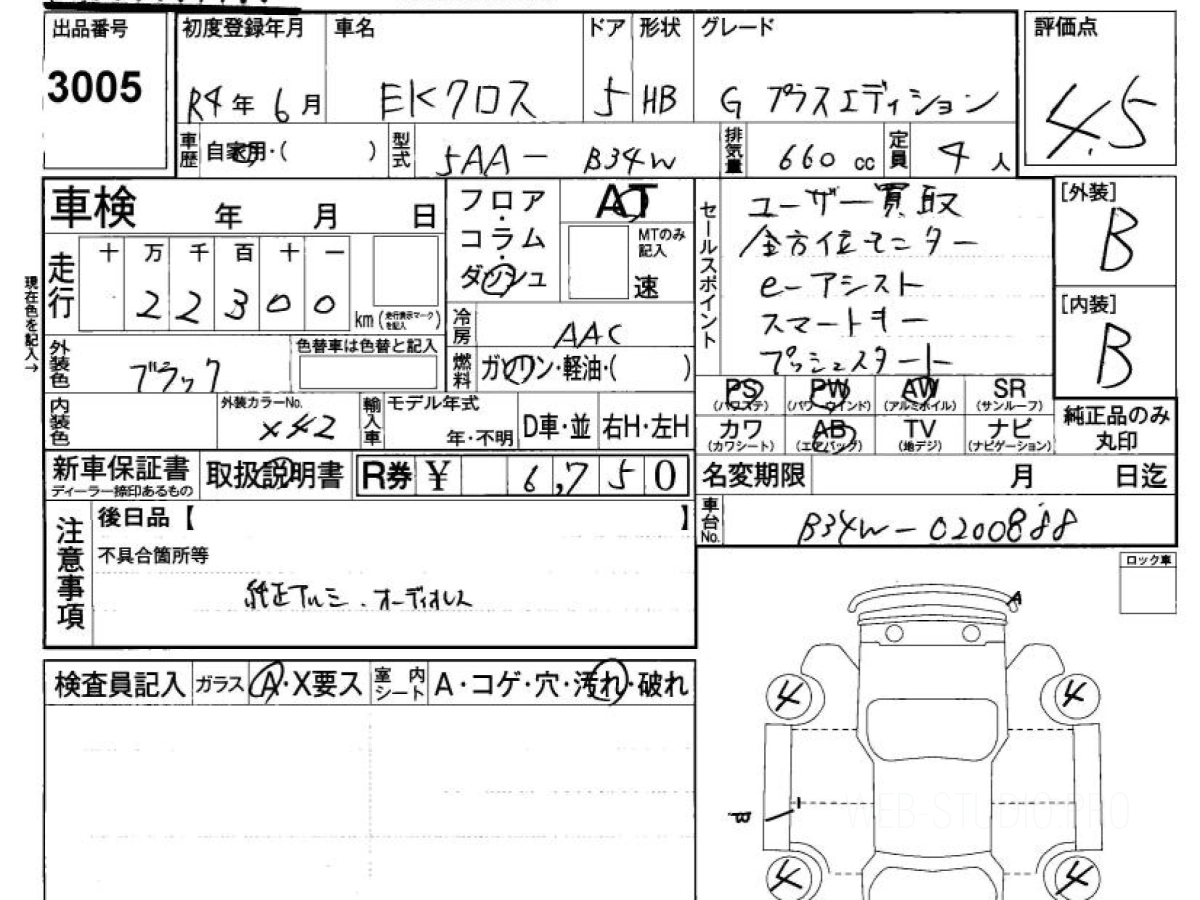 出品番号
3005
初度登録年月 車名 ドア 形状 グレード
R4年 6月 EKクロス 5 HB G プラスエディション
車歴 自家用・( ) 型式 5AA－B34W 排気量 660 cc 定員 4人
評価点
4.5
車検 年 月 日
フロア・コラム・ダッシュ
AT
MTのみ記入
速
セールスポイント
ユーザー買取
全方位モニター
e-アシスト
スマートキー
プッシュスタート
[外装]
B
[内装]
B
現在色を記入→
走行 十 万 千 百 十 一
2 2 3 0 0 km (走行表示マークを記入)
冷房 AAC
燃料 ガソリン・軽油・( )
外装色 ブラック
色替車は色替と記入
PS (パワステ) PW (パワーウインド) AW (アルミホイル) SR (サンルーフ)
カワ (カワシート) AB (エアバッグ) TV (地デジ) ナビ (ナビゲーション)
純正品のみ
丸印
内装色 外装カラーNo. X42
輸入車 モデル年式 年・不明 D車・並 右H・左H
新車保証書
ディーラー捺印あるもの
取扱説明書 R券 ¥ 6,750
名変期限 月 日迄
車台No. B34W－0200888
注意事項
後日品【 】
不具合箇所等
純正アルミ．オーディオレス
ロック車
検査員記入 ガラス A・X要ス 室内シート A・コゲ・穴・汚れ・破れ
A
4 4
B
4 4
WEB-STUDIO.PRO